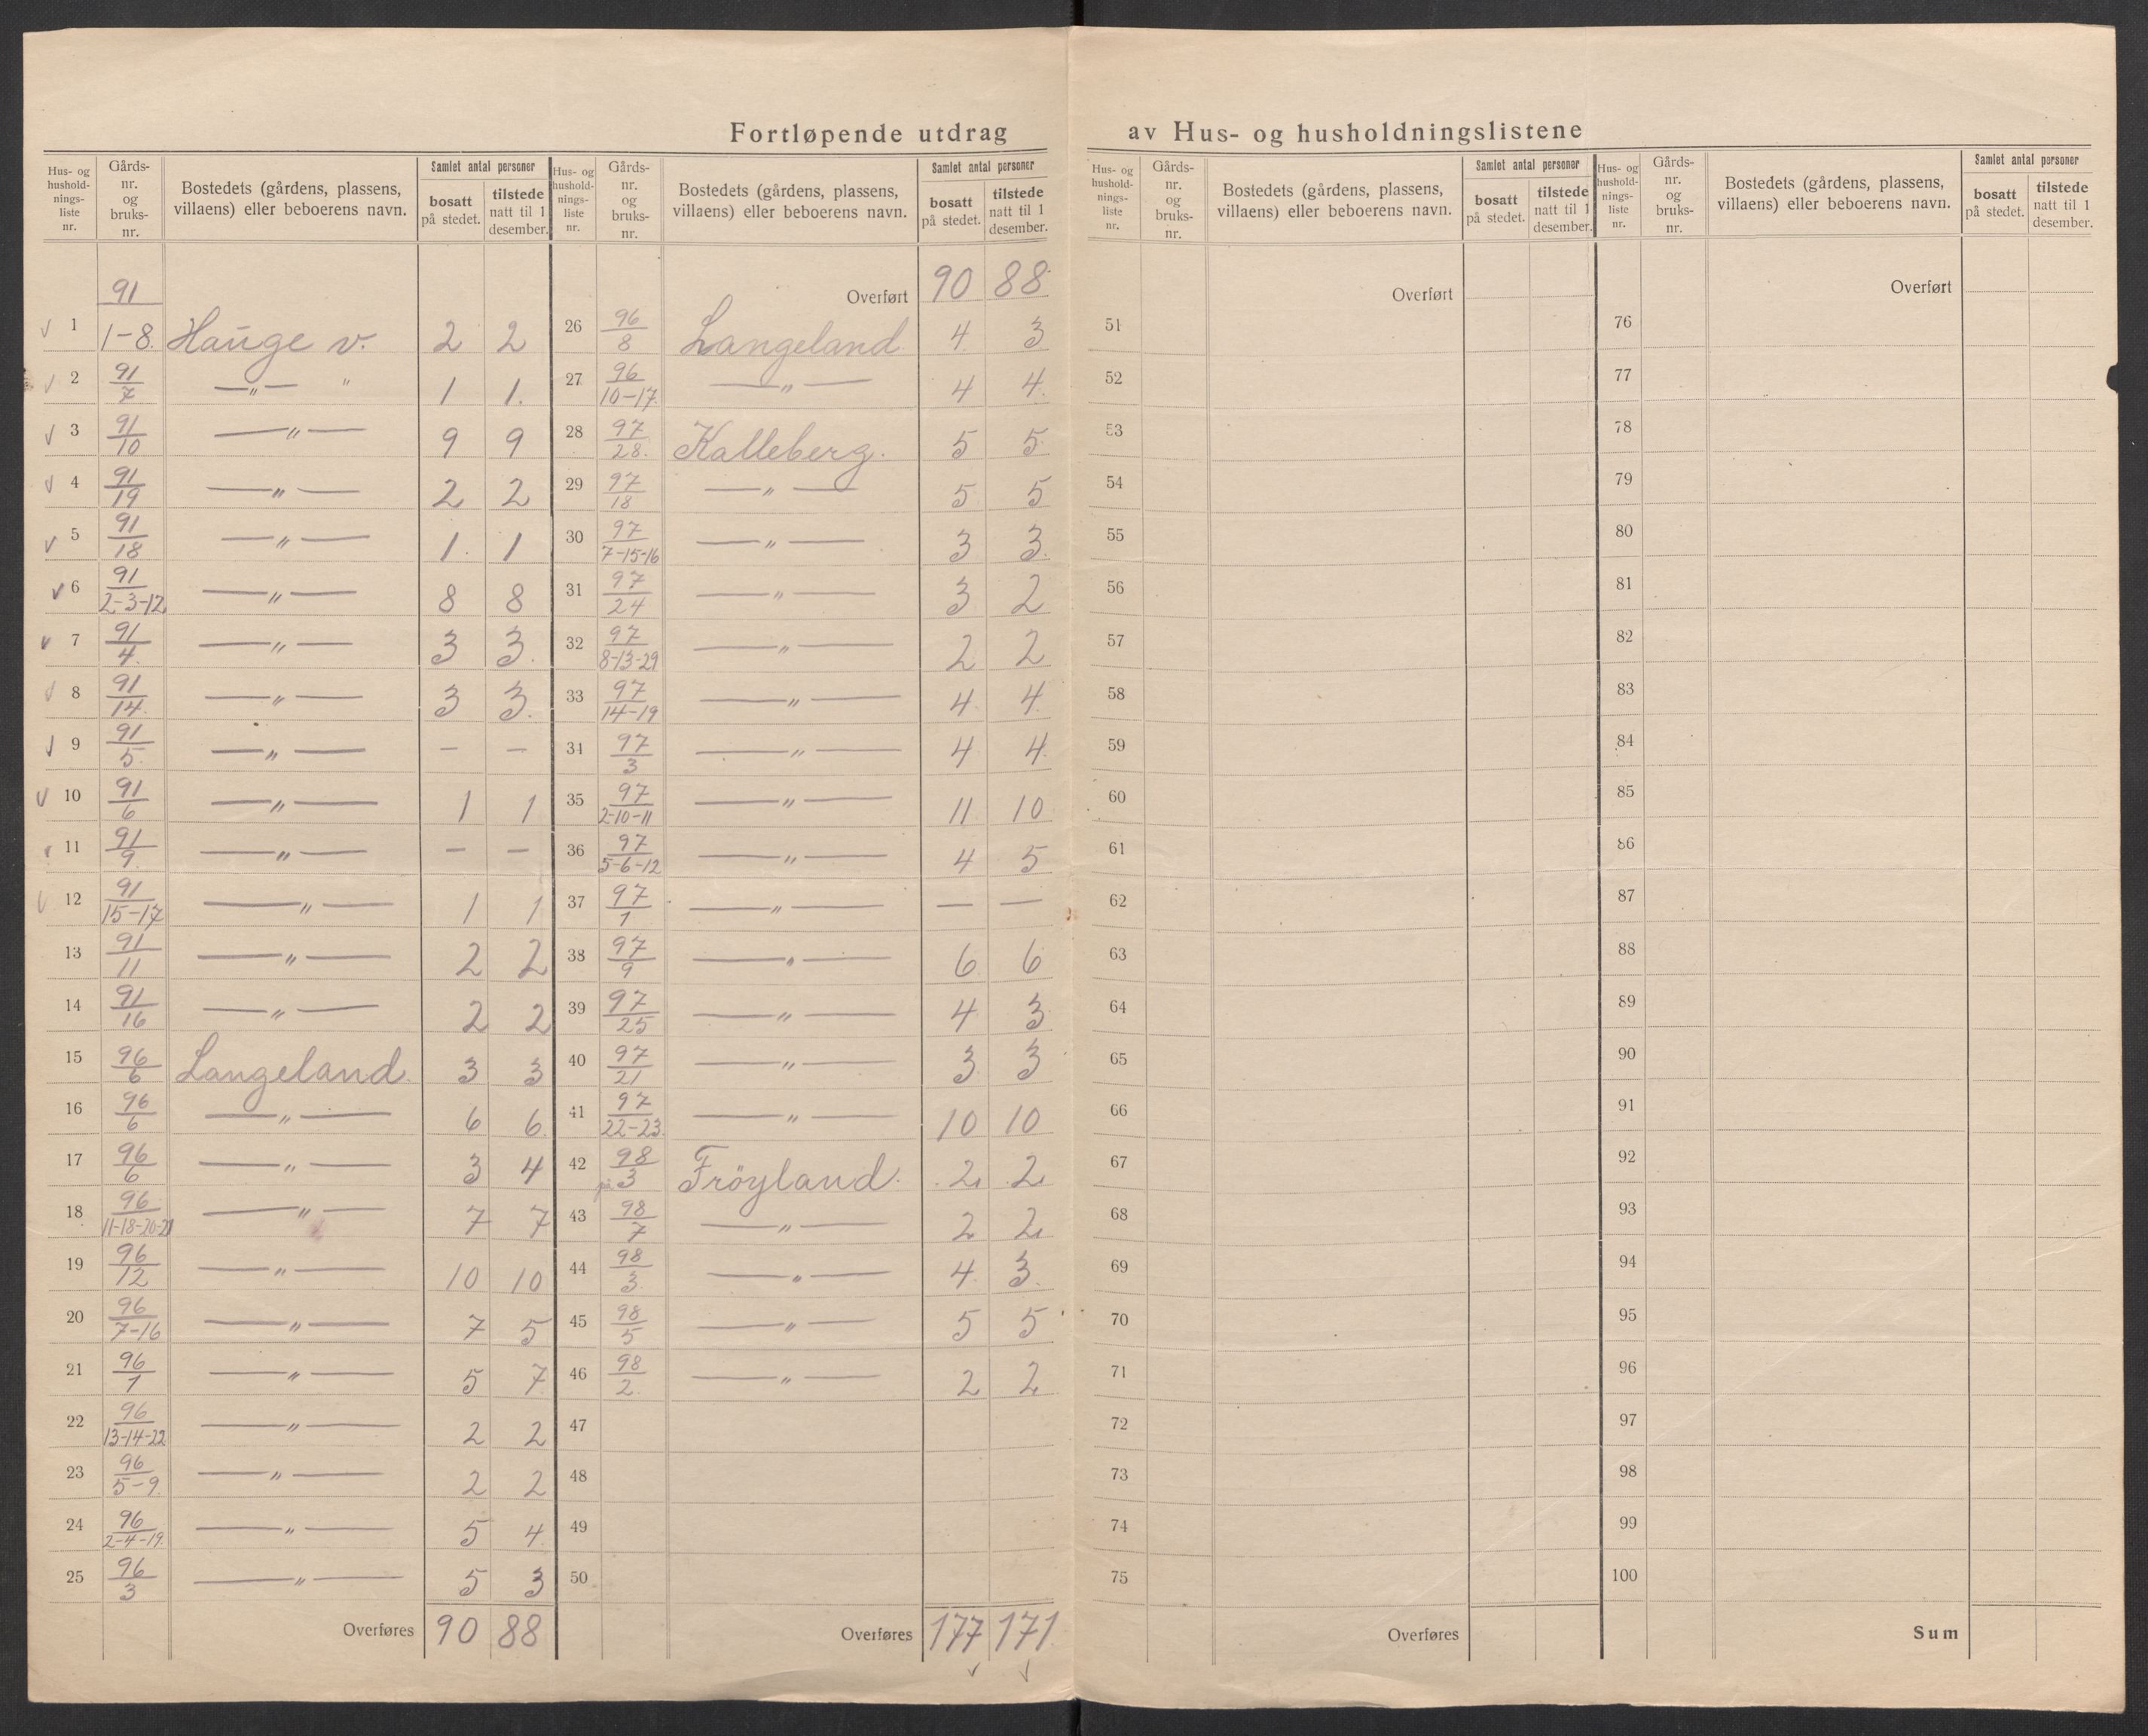 Fortløpende utdrag av Hus- og husholdningslistene
Hus- og hushold- nings- liste nr. | Gårds- nr. og bruks- nr. | Bostedets (gårdens, plassens, villaens) eller beboerens navn. | Samlet antal personer | bosatt på stedet. | tilstede natt til 1 desember.
1 91/1-8. Hauge v. 2 2
2 91/7 —"— " 1 1.
3 91/10 —"— 9 9
4 91/19 —"— 2 2
5 91/18 —"— 1. 1
6 91/2-3-12 —"— 8 8
7 91/4. —"— 3 3.
8 91/14. —"— 3 3.
9 91/5. —"— – –
10 91/6 —"— 1 1
11 91/9. —"— – –
12 91/15-17 —"— 1 1
13 91/11 —"— 2 2
14 91/16 —"— 2 2
15 96/6 Langeland. 3 3
16 96/6 —"— 6 6.
17 96/6 —"— 3 4
18 96/11-18-20-21 —"— 7 7
19 96/12 —"— 10 10
20 96/7-16 —"— 7 5
21 96/1 —"— 5 7
22 96/13-14-22 —"— 2 2
23 96/5-9. —"— 2 2
24 96/2-4-19. —"— 5 4
25 96/3 —"— 5 3
Overføres 90 88
Hus- og hushold- nings- liste nr. | Gårds- nr. og bruks- nr. | Bostedets (gårdens, plassens, villaens) eller beboerens navn. | Samlet antal personer | bosatt på stedet. | tilstede natt til 1 desember.
Overført 90 88
26 96/8 Langeland 4 3
27 96/10-17. —"— 4 4.
28 97/28. Kalleberg. 5 5
29 97/18 —"— 5 5
30 97/7-15-16 —"— 3 3.
31 97/24 —"— 3 2
32 97/8-13-29 —"— 2 2
33 97/14-19 —"— 4 4.
34 97/3 —"— 4 4.
35 97/2-10-11 —"— 11 10
36 97/5-6-12 —"— 4 5
37 97/1 —"— — —
38 97/9 —"— 6 6
39 97/25 —"— 4 3
40 97/21 —"— 3 3
41 97/22-23. —"— 10 10
42 98/3 Fröyland. 2 2
43 98/7 —"— 2 2
44 98/3. —"— 4 3.
45 98/5 —"— 5 5
46 98/2. —"— 2 2
47
48
49
50
Overføres 177 171
Hus- og hushold- nings- liste nr. | Gårds- nr. og bruks- nr. | Bostedets (gårdens, plassens, villaens) eller beboerens navn. | Samlet antal personer | bosatt på stedet. | tilstede natt til 1 desember.
Overført
51
52
53
54
55
56
57
58
59
60
61
62
63
64
65
66
67
68
69
70
71
72
73
74
75
Overføres
Hus- og hushold- nings- liste nr. | Gårds- nr. og bruks- nr. | Bostedets (gårdens, plassens, villaens) eller beboerens navn. | Samlet antal personer | bosatt på stedet. | tilstede natt til 1 desember.
Overført
76
77
78
79
80
81
82
83
84
85
86
87
88
89
90
91
92
93
94
95
96
97
98
99
100
Sum